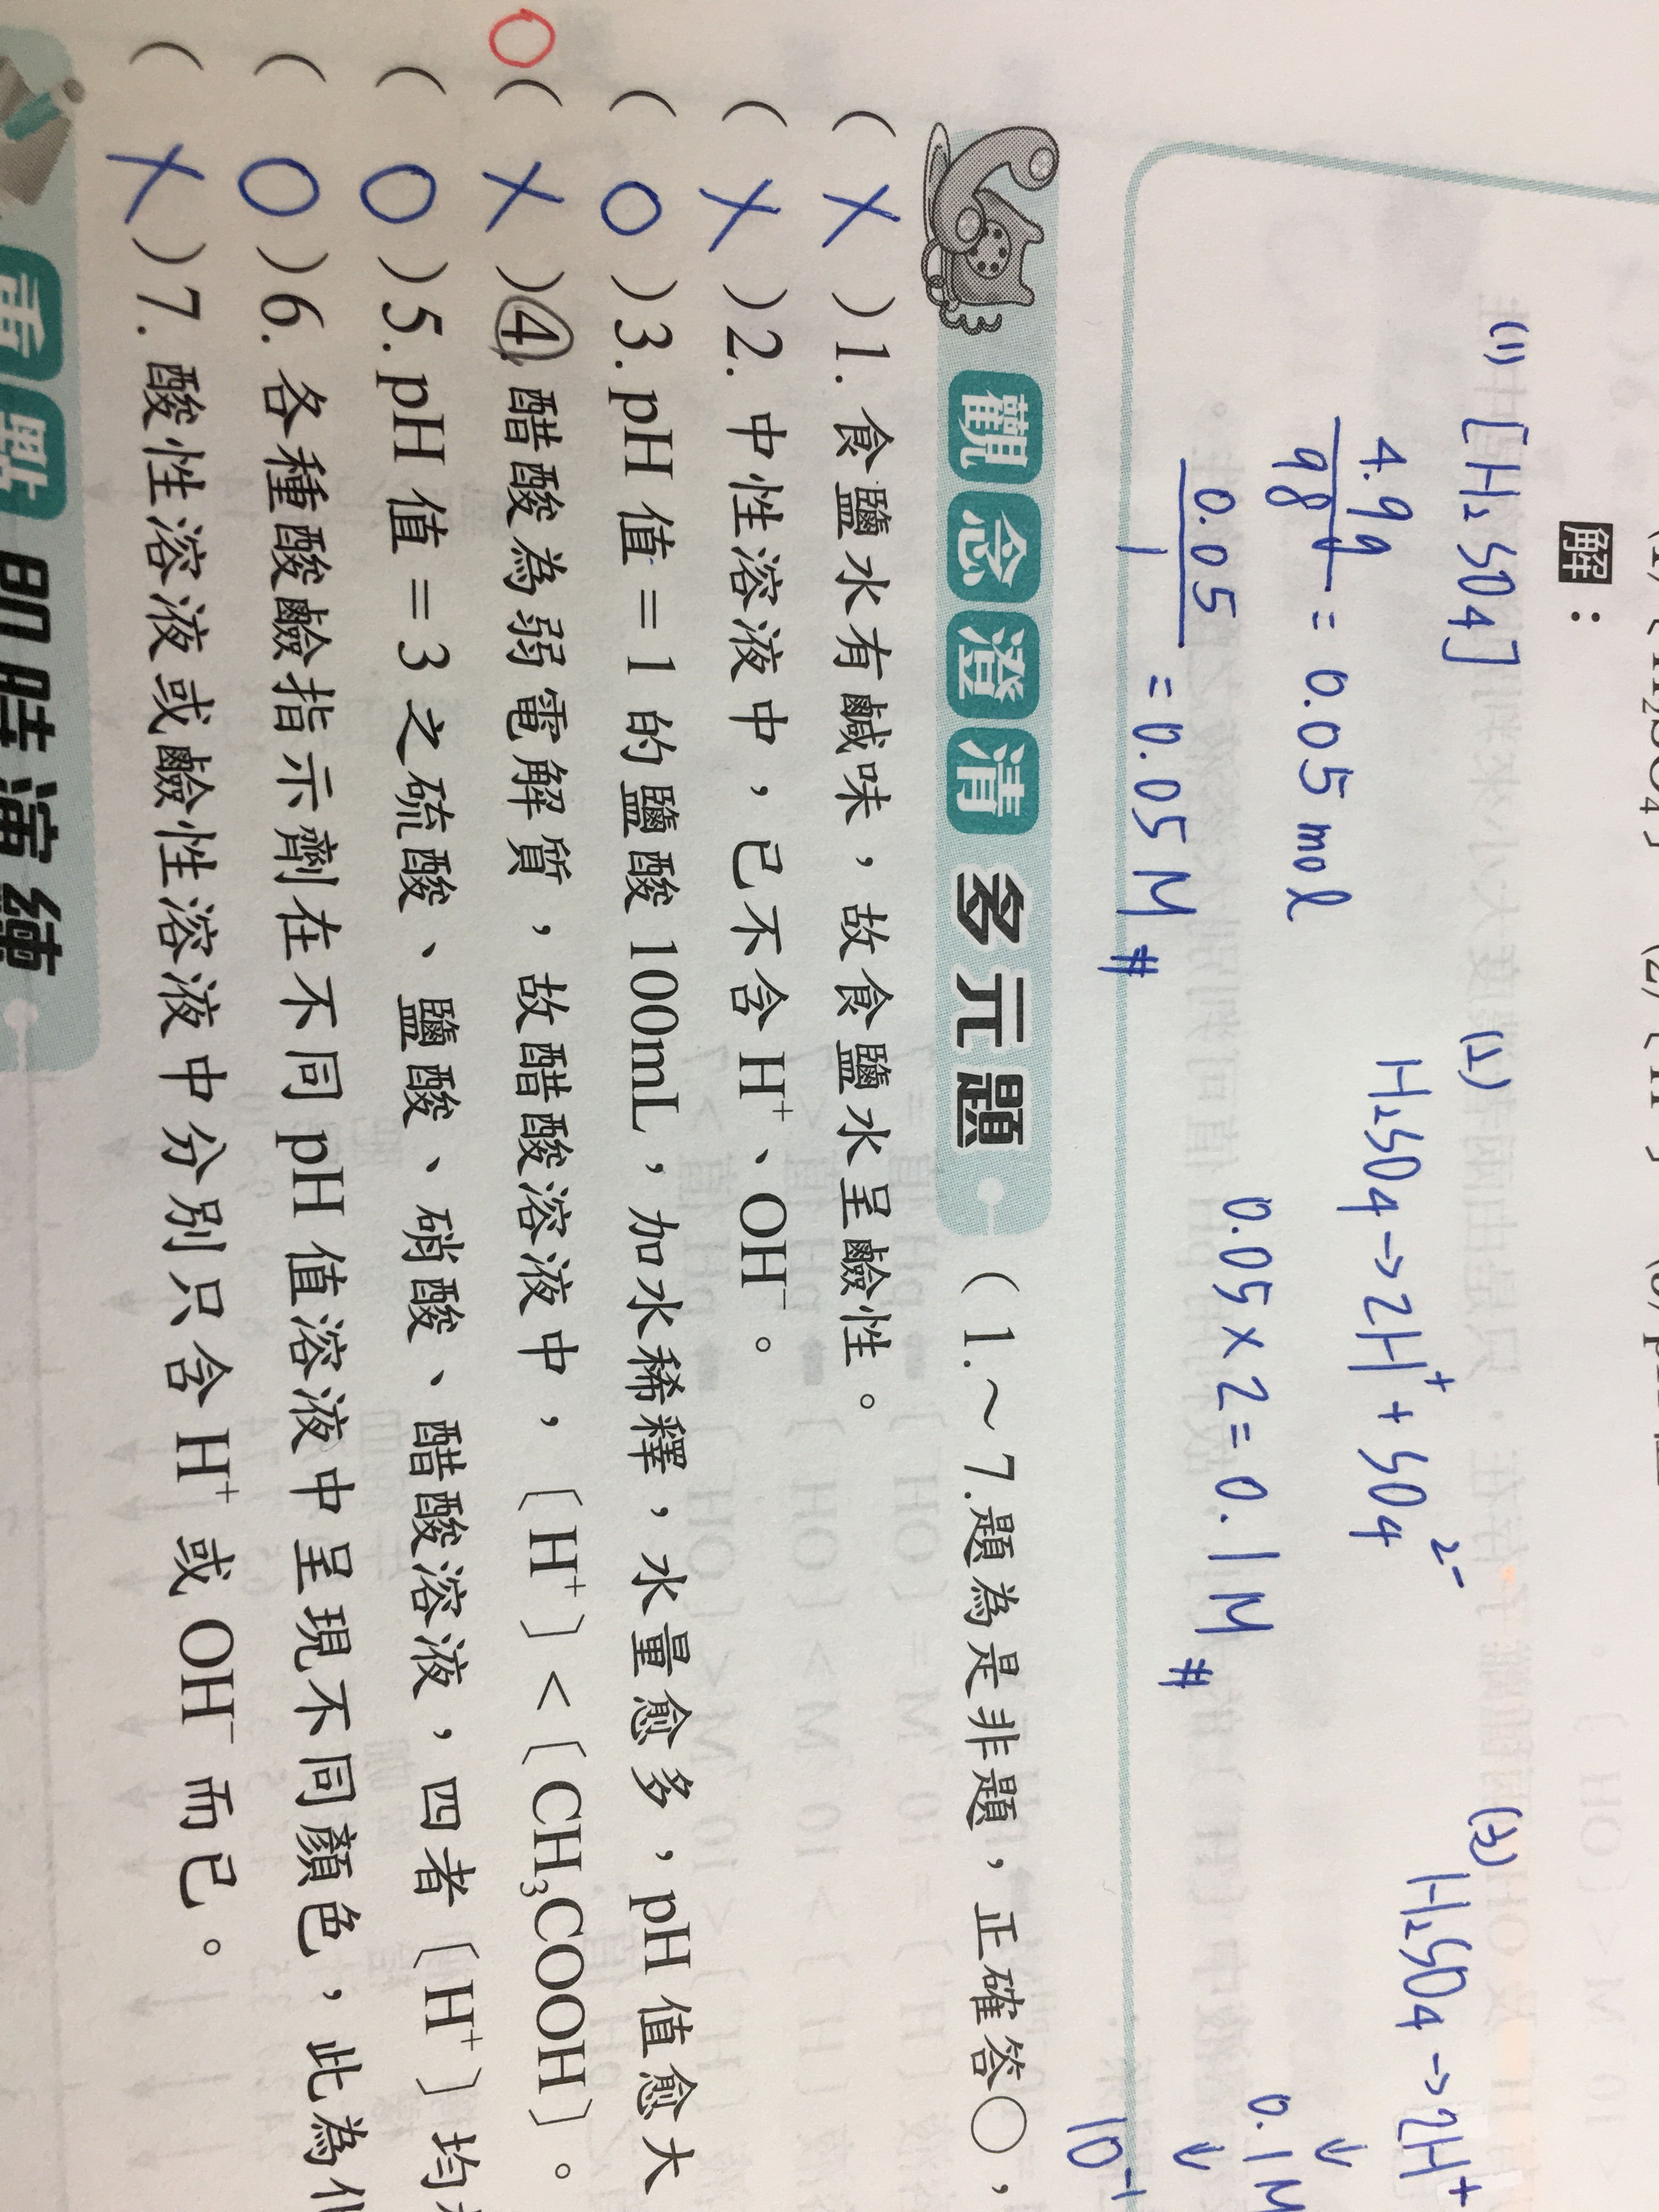 解：
(1) [H₂SO₄]
4.9g / 98 = 0.05 mol
0.05 / 1 = 0.05 M #
(2) H₂SO₄→2H⁺+SO₄²⁻
0.05×2=0.1M #
(3) H₂SO₄→2H⁺
↓
0.1M
↓
10⁻¹
觀念澄清多元題（1.～7.題為是非題，正確答○，
( X )1. 食鹽水有鹹味，故食鹽水呈鹼性。
( X )2. 中性溶液中，已不含 H⁺、OH⁻。
( O )3. pH 值＝1 的鹽酸 100mL，加水稀釋，水量愈多，pH 值愈大
O ( X )4. 醋酸為弱電解質，故醋酸溶液中，〔H⁺〕<〔CH₃COOH〕。
( O )5. pH 值＝3 之硫酸、鹽酸、硝酸、醋酸溶液，四者〔H⁺〕均
( O )6. 各種酸鹼指示劑在不同 pH 值溶液中呈現不同顏色，此為
( X )7. 酸性溶液或鹼性溶液中分別只含 H⁺ 或 OH⁻ 而已。